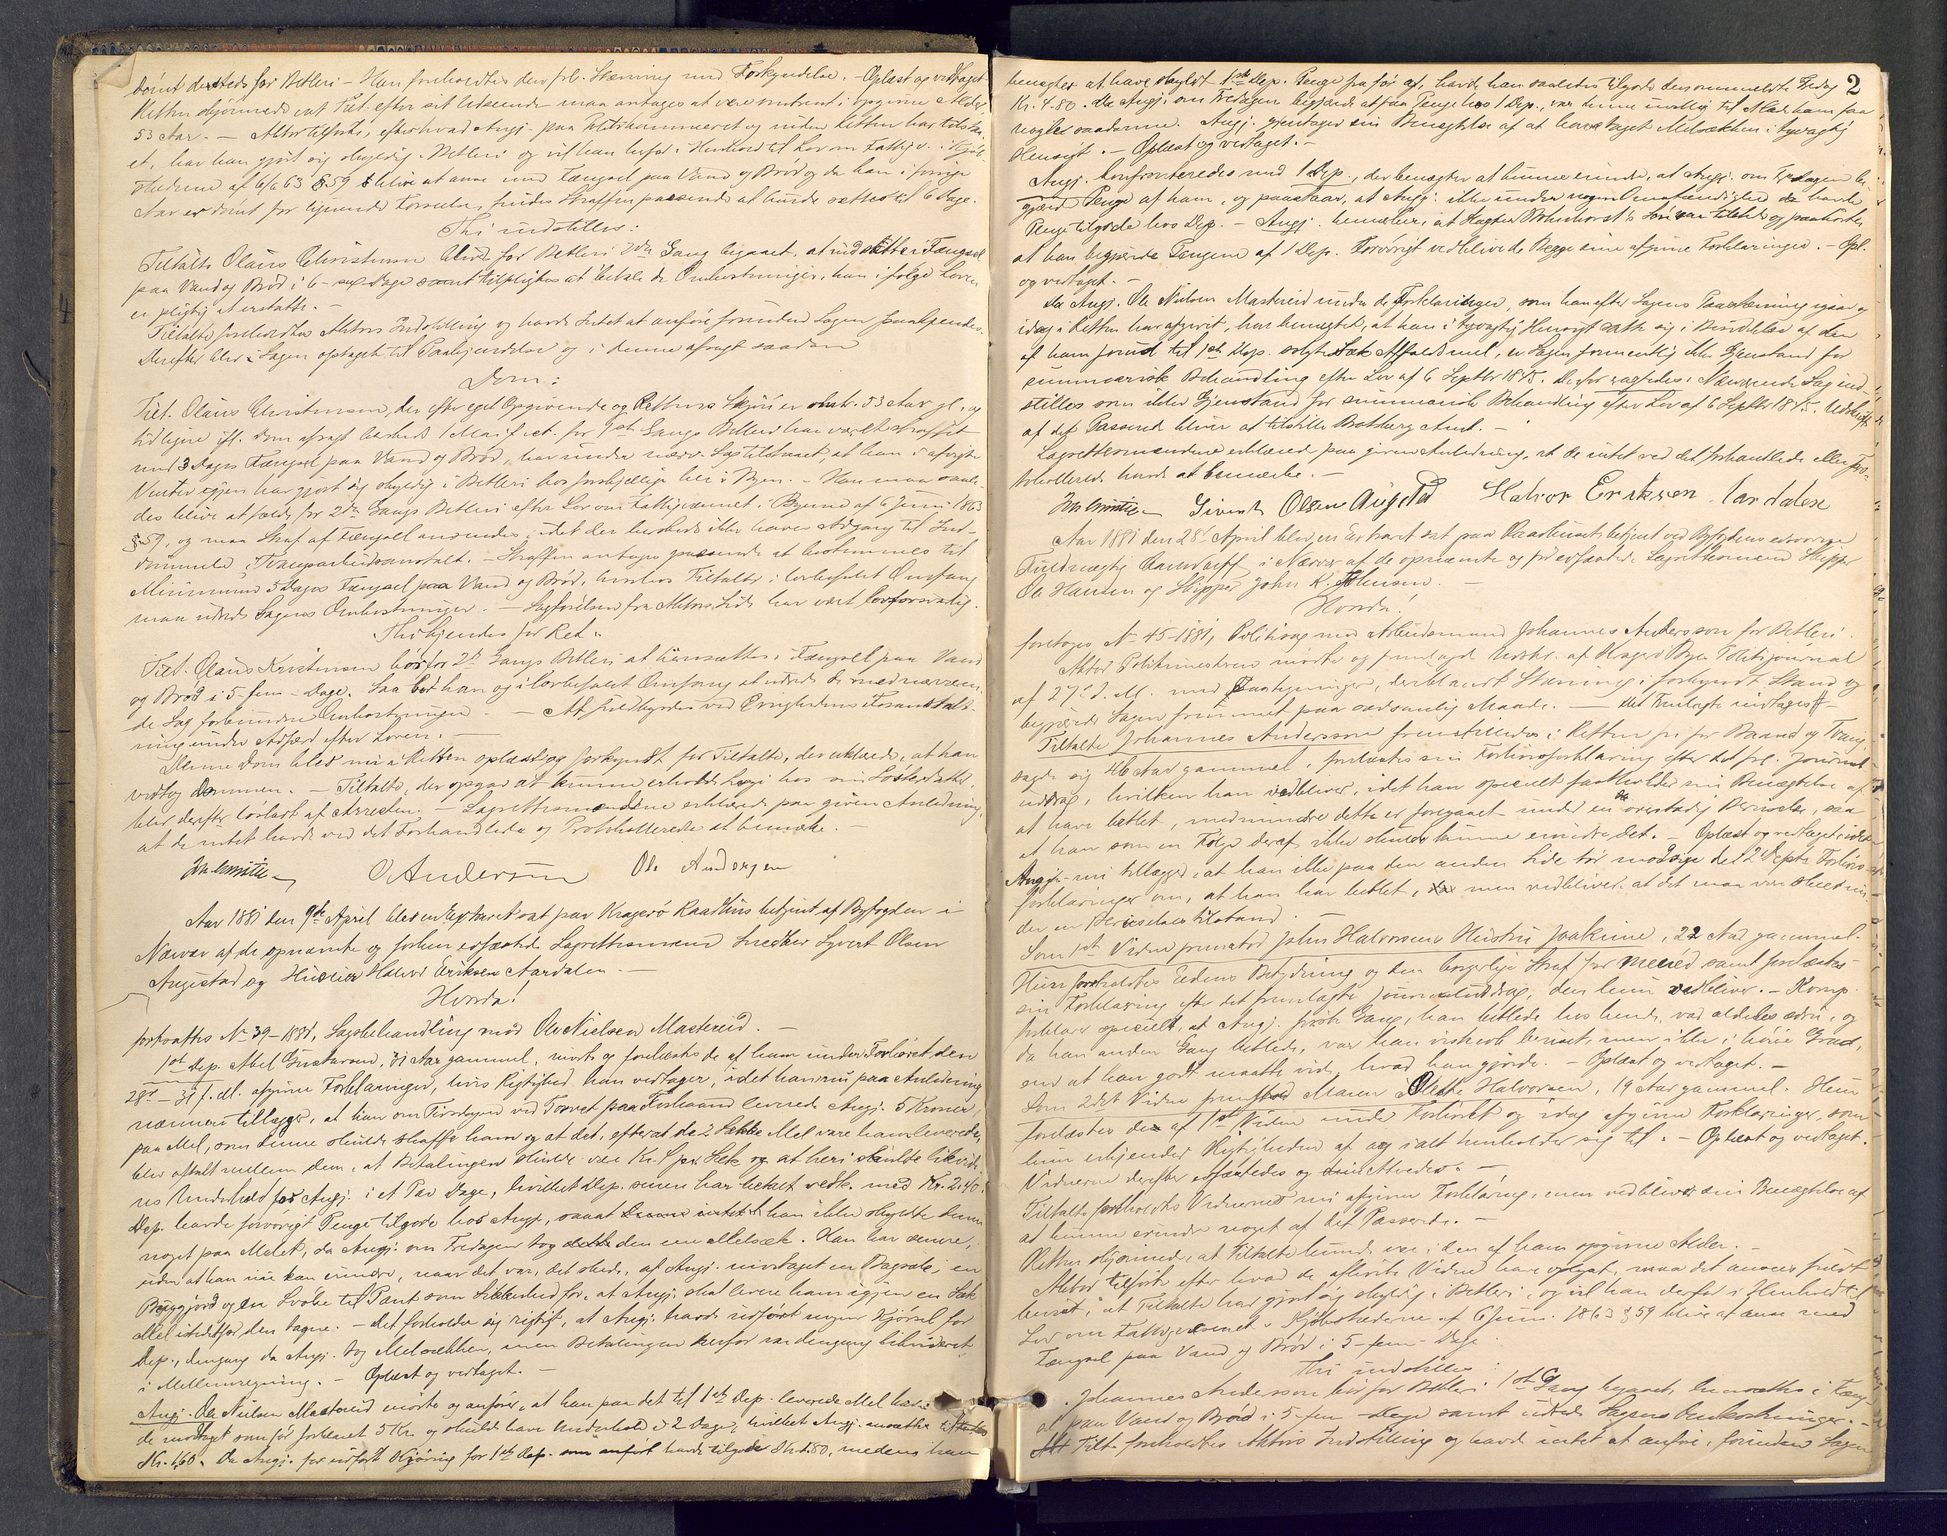 dømt dersteds for Betleri – Han foreholdtes den frl. Stævning med Forkyndelse. – Oplæst og vedtaget
Retten skjønnede at Tilt. efter sit Udseende maa antages at være omtrent i opgivne Alder
53 Aar. – Aktor tilførte, efter hvad Angj. paa Politikammeret og inden Retten har tilstaa-
et, har han gjort sig skyldig i Betleri og vil han derfor i Henhold til Lov om Fattigv. i Kjøb-
stæderne af 6/6 63 § 59 blive at anse med Fængsel paa Vand og Brød og da han i forrige
Aar er dømt for lignende Forseelse, findes Straffen passende at burde sættes til 6 Dage.
Thi indstilles:
Tiltalte Olaus Christensen bliver for Betleri 2den Gang begaaet, at indsætte i Fængsel
paa Vand og Brød i 6 – sex Dage samt tilpligtes at betale de Omkostninger, han ifølge Loven
er pligtig at erstatte. –
Tiltalte foreholdtes Aktors Indstilling og havde Intet at anføre forinden Sagen paakjendes.
Derefter blev Sagen optaget til Paakjendelse og i denne afsagt saadan
Dom:
Tilt. Olaus Christensen, der efter eget Opgivende og Rettens Skjøn er omtr. 53 Aar gl. og
tidligere ifl. Dom afsagt hersteds 1 Mai f. Aar. for 1ste Gangs Betleri har været straffet
med 3 Dages Fængsel paa Vand og Brød, har under nærv. Sag tilstaaet, at han i afvigte
Vinter igjen har gjort sig skyldig i Betleri hos forskjellige her i Byen. – Han maa saale-
des blive at fælde for 2den Gangs Betleri efter Lov om Fattigvæsenet i Byerne af 6 Juni 1863
§ 59, og maa Straf af Fængsel anvendes, idet der hersteds ikke haves Adgang til Ind-
dømmelse i Tvangsarbeidsanstalt. – Straffen antages passende at bestemmes til
Minimum 5 Dages Fængsel paa Vand og Brød, hvorhos Tiltalte i lovbefalet Omfang
maa udrede Sagens Omkostninger. – Sagførelsen fra Aktors Side har vært lovforsvarlig.
Thi kjendes for Ret:
Tilt. Olaus Kristensen bør for 2den Gangs Betleri at hensættes i Fængsel paa Vand
og Brød i 5 – fem – Dage. Saa bør han og i lovbefalet Omfang at udrede de med nærværen-
de Sag forbundne Omkostninger. – At fuldbyrdes ved Øvrighedens Foranstalt-
ning under Adfærd efter Loven. –
Denne Dom blev nu i Retten oplæst og forkyndt for Tiltalte, der erklærede, at han
vedtog Dommen. – Tiltalte, der opgav at kunne erholde Logi hos sin Søster
blev derefter løsladt af Arresten. – Lagrettesmændene erklærede paa given Anledning,
at de intet havde ved det Forhandlede og Protokollerede at bemærke. –
O Andersen Ole Andersen
Aar 1881 den 9de April blev en Extraret sat paa Kragerø Raadhus betjent af Byfogden i
Nærvær af de opnævnte og forhen edfæstede Lagrettesmænd Snedker Syvert Olsen
Augestad og Huseier Halvor Eriksen Aardalen. –
Hvorda!
fortsattes No 39 – 1881, Sagsbehandling mod Ole Nielsen Mastereid. –
1ste Dep. Abel Gustavsen, 31 Aar gammel, mødte og forelæstes de af ham under Forhøret den
28de – 31 f. M. afgivne Forklaringer, hvis Rigtighed han vedtager, idet han nu paa Anledning
nærmere tillægger, at han om Tirsdagen ved Torvet paa Forhaand leverede Angj. 5 Kroner
paa Mel, som denne skulde skaffe ham og at det, efterat de 2 Sække Mel vare ham leverede,
blev aftalt mellem dem, at Betalingen skulde være Kr. 9 pr. Sæk og at heri skulde likvide-
res Underhold for Angj. i et Par Dage, hvilket Dep. senere har betalt med Kr. 2.40.
Dep. havde forøvrigt Penge tilgode hos Angj., saaat han ikke skyldte denne
noget paa Melet, da Angj. om Fredagen tog den ene Melsæk. Han har senere,
uden at han nu kan erindre, naar det var, det skede, af Angj. modtaget en Bagsæle, en
Buggjord og en Svøbe til Pant som Sikkerhed for, at Angj. skal levere ham igjen en Sæk
Mel istedetfor den tagne. – Det forholder sig rigtigt, at Angj. havde udført nogen Kjørsel for
Dep., dengang da Angj. tog Melsækken, men Betalingen herfor var dengang likvideret
i Mellemregning. – Oplæst og vedtaget. –
Angj. Ole Nielsen Mastereid mødte og anfører, at han paa det til 1ste Dep. leverede Mel havde
modtaget som før forklaret 5 Kr. og skulde have Underhold i 2 Dage, hvilket Angj. ansætter til
Kr. 1.60. Da Angj. for udført Kjøring for 1ste Dep. havde tilgode 80, medens han
2
benægter at have skyldt 1ste Dep. Penge fra før af, havde han saaledes tilgode den ommeldte Fredag
Kr. 4.80. Da Angj. om Fredagen begjærede at faa Penge hos 1 Dep., var denne uvillig til at lade ham faa
nogle saadanne. Angj. gjentager sin Benægtelse af at have taget Melsækken i tyvagtig
Hensigt. – Oplæst og vedtaget. –
Angj. konfronteredes med 1 Dep., der benægter at kunne erindre, at Angj. om Fredagen be-
gjærede Penge af ham, og paastaar, at Angj. ikke under nogen Omstændighed da havde
Penge tilgode hos Dep. – Angj. bemærker, at Kagfør Bohnhorst's Søn var tilstede og paahørte,
at han begjærede Pengene af 1 Dep. Forøvrigt vedblive de Begge sine afgivne Forklaringer. – Opl.
og vedtaget. –
Da Angj. Ole Nielsen Mastereid under de Forklaringer, som han efter Sagens Paastevning igaar og
idag i Retten har afgivet, har benægtet, at han i tyvagtig Hensigt satte sig i Besiddelse af den
af ham forud til 1ste Dep. solgte Sæk Affaldsmel, er Sagen formentlig ikke Gjenstand for
summarisk Behandling efter Lov af 6 Septbr 1845. Derfor vagtedes: Nærværende Sag ind-
stilles som ikke Gjenstand for summarisk Behandling efter Lov af 6 Septbr 1845. Udskrift
af det Passerede bliver at tilstille Bratsberg Amt. –
Lagrettesmændene erklærede paa given Anledning, at de intet ved det forhandlede eller Pro-
tokollerede havde at bemærke. –
Sivert Olsen Augestad Halvor Eriksen Aardalen
Aar 1881 den 28de April blev en Extraret sat paa Raadhuset betjent ved Byfogdens edsvorne
Fuldmægtig i Nærvær af de opnævnte og før edfæstede Lagrettesmænd Skipper
Ole Hansen og Skipper John K. Jensen. –
Hvorda!
foretoges No 45 – 1881, Politisag mod Arbeidsmand Johannes Andersson for Betleri.
Aktor Politimesteren mødte og fremlagde Udskr. af Kragerø Byes Politijournal
af 27de d. M. med Paategninger, deriblandt Stævning i forkyndt Stand og
begjærede Sagen fremmet paa sædvanlig Maade. – Det Fremlagte indtages
Tiltalte Johannes Andersson fremstilledes i Retten fri for Baand og Tvang,
sagde sig 46 Aar gammel, forelæstes sin Forhørsforklaring efter det frl. Journal-
uddrag, hvilken han vedbliver, idet han specielt fastholder sin Benægtelse af
at have betlet, medmindre dette er foregaaet under en overstadig Beruselse, saa
at han som en Følge deraf ikke skulde kunne erindre det. – Oplæst og vedtaget, idet
Angj. nu tillægger, at han ikke paa den anden Side tør modsige de 2 Dep's Forhørs-
forklaringer om, at han har betlet, men vedbliver at det maa være skeed un-
der en Beruselsestilstand. –
Som 1ste Vidne fremstod John Halvorsens Hustru Joakime, 22 Aar gammel.
Hun foreholdtes Edens Betydning og den borgerlige Straf for Meened samt forelæstes
sin Forklaring efter det fremlagte Journaluddrag, den hun vedbliver. – Komp.
forklarer specielt, at Angj. første Gang, han betlede hos hende, var aldeles ædru, og
da han anden Gang betlede, var han vistnok beruset, men ikke i høiere Grad,
end at han godt maatte vide, hvad han gjorde. – Oplæst og vedtaget. –
Som 2det Vidne fremstod Maren Halvorsen, 19 Aar gammel. Hun
forelæstes den af 1ste Vidne under Forhøret og idag afgivne Forklaringer, som
hun erkjender Rigtigheden af og i alt henholder sig til. – Oplæst og vedtaget.
Vidnerne derefter edfæstedes og dimitteredes. –
Tiltalte foreholdtes Vidnernes nu afgivne Forklaring, men vedbliver sin Benægtelse af
at kunne erindre noget af det Passerede. –
Retten skjønnede, at Tiltalte kunde være i den af ham opgivne Alder. –
Aktor tilførte efter hvad de aflagte Vidner have oplyst, maa det ansees fuldt
bevist, at Tiltalte har gjort sig skyldig i Betleri, og vil han derfor i Henhold til
Lov om Fattigvæsenet i Kjøbstæderne af 6 Juni 1863 § 59 blive at anse med
Fængsel paa Vand og Brød i 5 – fem – Dage.
Thi indstilles:
Johannes Andersson bør for Betleri 1ste Gang begaaet, hensættes i Fæng-
sel paa Vand og Brød i 5 – fem – Dage samt udrede Sagens Omkostninger. –
Tilt. foreholdtes Aktors Indstilling og havde intet at anføre, forinden Sagen